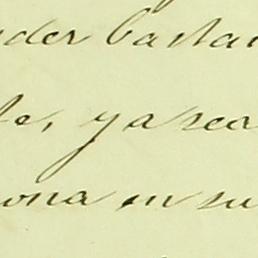 der basta
te, ya sea
ona en su